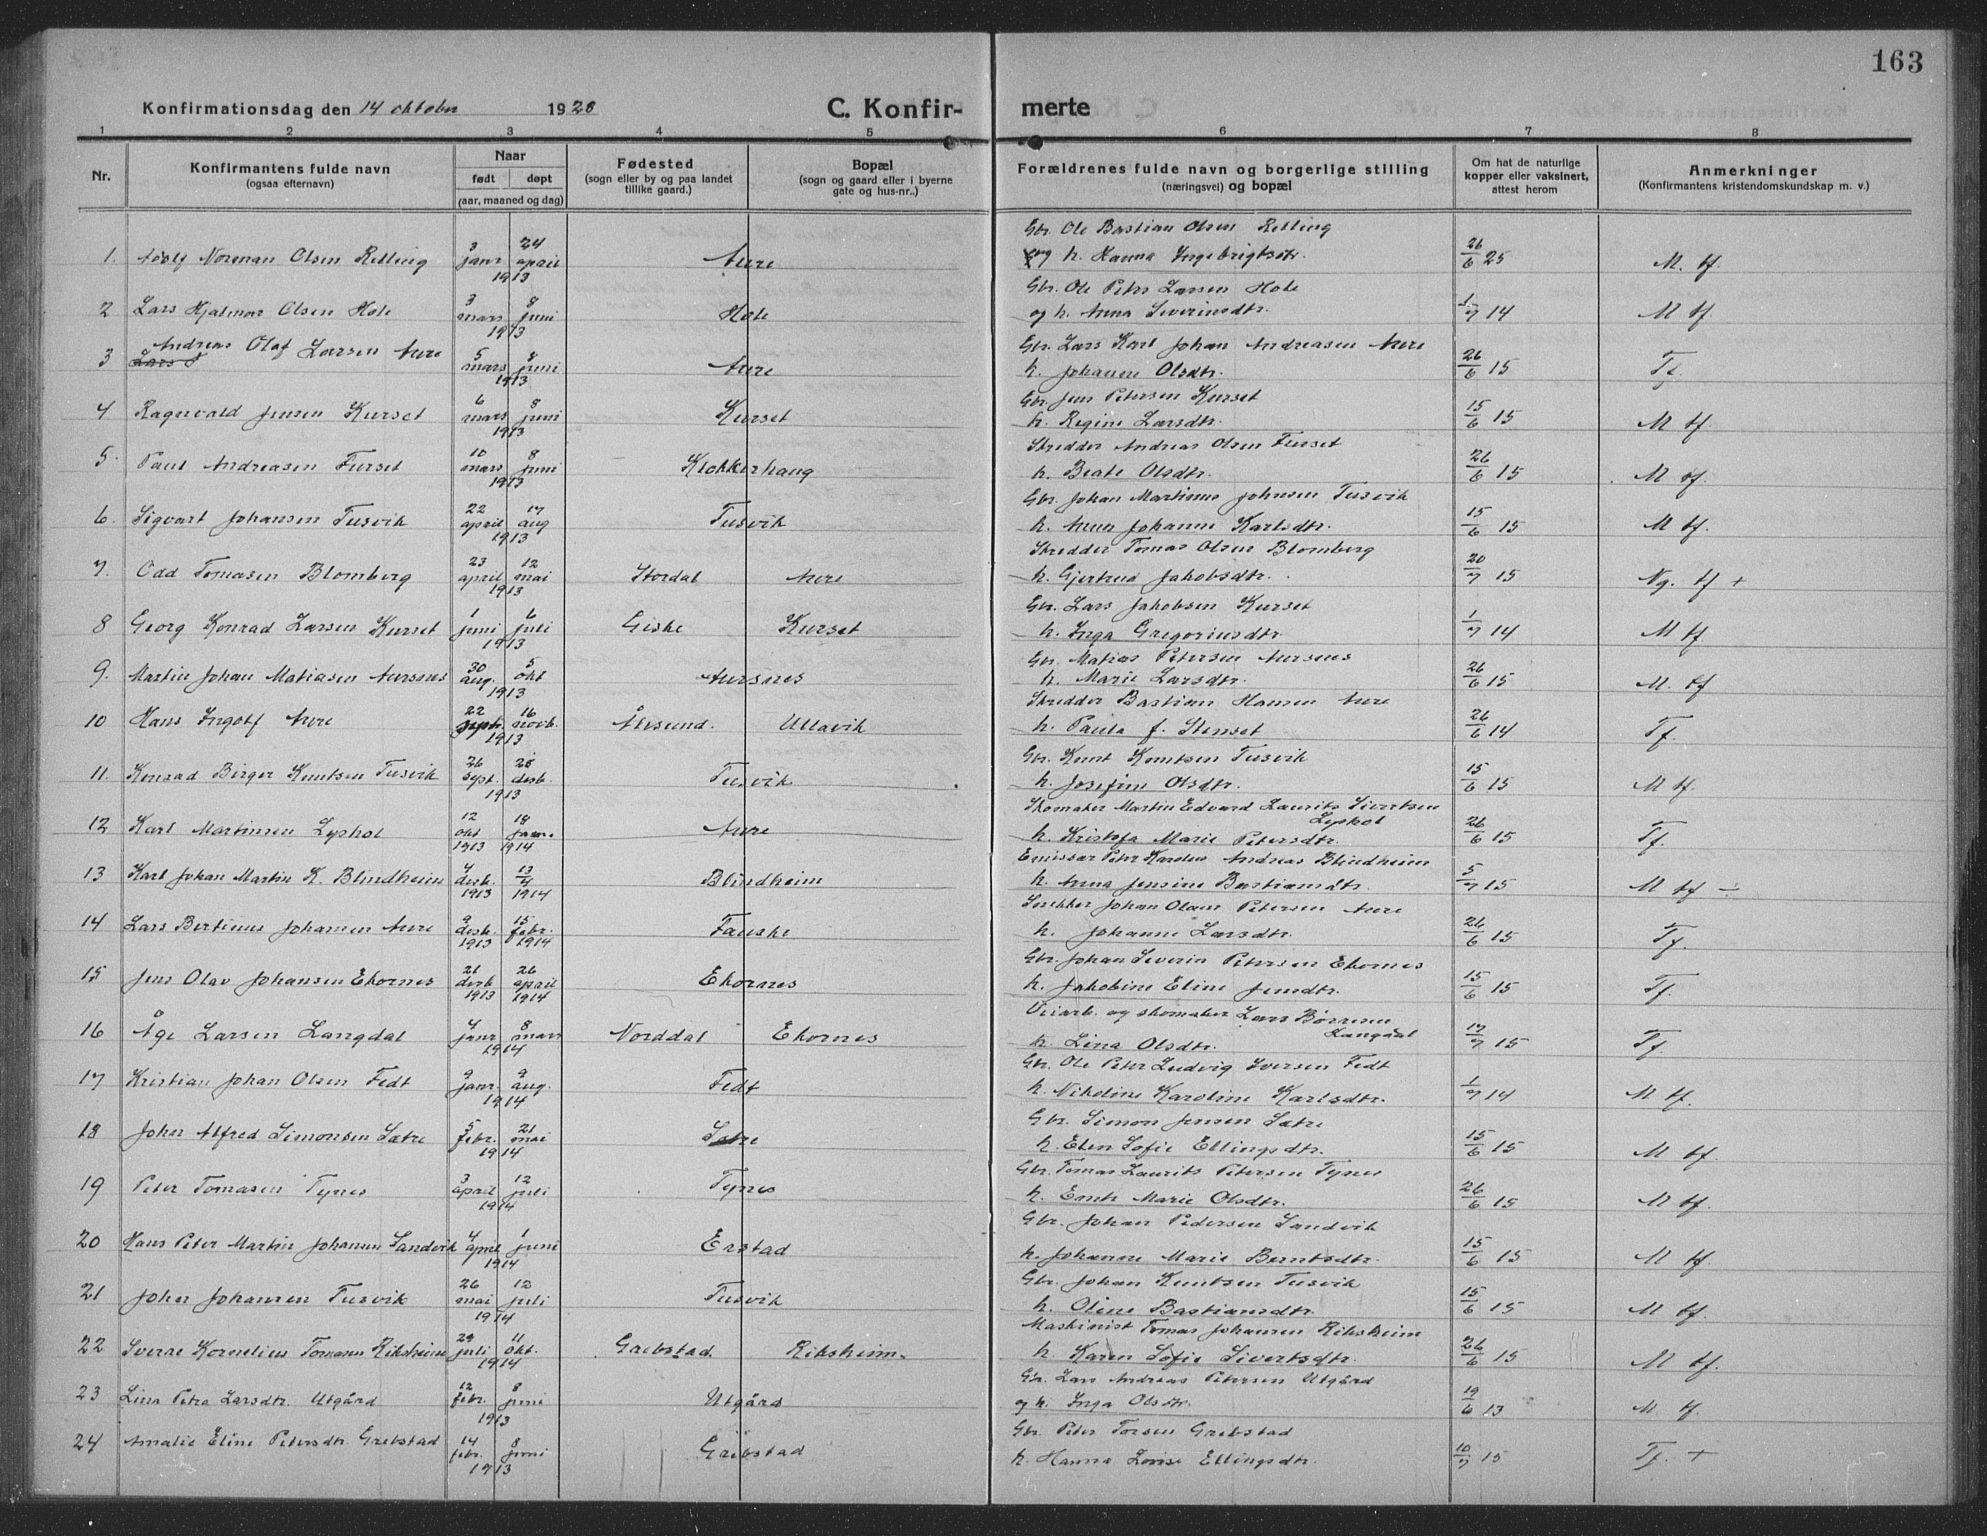 163
Konfirmationsdag den 14 oktober 1928 C. Konfir- merte
1 2 3 4 5 6 7 8
Nr.
Konfirmantens fulde navn
(ogsaa efternavn)
Naar
født døpt
(aar, maaned og dag)
Fødested
(sogn eller by og paa landet
tillike gaard.)
Bopæl
(sogn og gaard eller i byerne
gate og hus-nr..)
Forældrenes fulde navn og borgerlige stilling
(næringsvei) og bopæl
Om hat de naturlige
kopper eller vaksinert,
attest herom
Anmerkninger
(Konfirmantens kristendomskundskap m. v.)
Gbr. Ole Bastian Olsen Relling
1. Adolf Norman Olsen Relling 3 janr 24 april 1913 Aure og h. Hanna Ingebrigtsdtr. 26/6 25 M. tf.
Gbr. Ole Peter Larsen Hole
2 Lars Hjalmar Olsen Hole 3 mars 8 juni 1913 Hole og h. Anna Severinsdtr. 1/7 14 M tf.
Gbr. Lars Karl Johan Andreasen Aure
3 Andreas Olaf Larsen Aure 5 mars 8 juni 1913 Aure h. Johanne Olsdtr. 26/6 15 Tf.
Gbr. Jens Petersen Kurset
4 Ragnvald Jensen Kurset 6 mars 8 juni 1913 Kurset h. Regine Larsdtr. 15/6 15 M tf.
Skredder Andreas Olsen Furset
5. Paul Andreasen Furset 10 mars 8 juni 1913 Klokkerhaug h. Beate Olsdtr. 26/6 15 M tf.
Gbr. Johan Martinus Johnsen Tusvik
6. Sigvart Johansen Tusvik 22 april 17 aug 1913 Tusvik h. Anna Johanne Karlsdtr. 15/6 15 M tf.
Skredder Tomas Olsen Blomberg
7. Odd Tomasen Blomberg 23 april 12 mai 1913 Stordal Aure h. Gjertrud Jakobsdtr. 20/7 15 Ng. tf +
Gbr. Lars Jakobsen Kurset
8 Georg Konrad Larsen Kurset 1 juni 6 juli 1913 Giske Kurset h. Inga Gregoriusdtr. 1/7 14 M tf
Gbr. Matias Petersen Aursnes
9. Martin Johan Matiasen Aursnes 30 aug. 5 okt 1913 Aursnes h. Marie Larsdtr. 26/6 15 M. tf
Skredder Bastian Hansen Aure
10 Hans Ingolf Aure 22 sept. 16 novb. 1913 Ålesund. Ullavik h. Paula f. Stenset 26/6 14 Tf.
Gbr. Knut Knutsen Tusvik
11. Konrad Birger Knutsen Tusvik 26 sept. 28 desb. 1913 Tusvik h. Josefine Olsdtr. 15/6 15 M tf.
Skomaker Martin Edvard Laurits Sivertsen Lyshol
12 Karl Martinsen Lyshol 12 okt 1913 18 janr. 1914 Aure h. Kristofa Marie Petersdtr. 26/6 15 Tf.
Emissær Peter Karolus Andreas Blindheim
13 Karl Johan Martin K. Blindheim 4 desb. 1913 13/4 1914 Blindheim h. Anna Jensine Bastiansdtr. 5/7 15 M tf ÷
Snekker Johan Olaus Petersen Aure
14 Lars Bertinus Johansen Aure 9 desb. 1913 15 febr. 1914 Fauske h. Johanne Larsdtr. 26/6 15 Tf.
Gbr. Johan Severin Petersen Ekornes
15 Jens Olav Johansen Ekornes 21 desb 1913 26 april 1914 Ekornes h. Jakobine Eline Jensdtr. 15/6 15 Tf.
Veiarb. og skomaker Lars Børresen Langdal
16 Åge Larsen Langdal 4 janr 8 mars 1914 Norddal Ekornes h. Lina Olsdtr. 17/7 15 Tf
Gbr. Ole Peter Ludvig Iversen Fedt
17 Kristian Johan Olsen Fedt 9 janr. 9 aug. 1914 Fedt h. Nikoline Karoline Karlsdtr. 1/7 14 M tf.
Gbr. Simon Jensen Sætre
18 Johan Alfred Simonsen Sætre 5 febr. 21 mai 1914 Sætre h. Elen Sofie Ellingsdtr. 15/6 15 M tf.
Gbr. Tomas Laurits Petersen Tynes
19 Peter Tomasen Tynes 3 april 12 juli 1914 Tynes h. Marie Olsdtr. 26/6 15 M tf.
Gbr. Johan Pedersen Sandvik
20 Hans Peter Martin Johansen Sandvik 4 april 1 juni 1914 Erstad h. Johanne Marie Berntsdtr. 15/6 15 M tf.
Gbr. Johan Knutsen Tusvik
21 Johan Johansen Tusvik 26 mai 12 juli 1914 Tusvik h. Oline Bastiansdtr. 15/6 15 M tf.
Maskinist Tomas Johansen Riksheim
22 Sverre Kornelius Tomasen Riksheim 29 juli 11 okt. 1914 Grebstad Riksheim. h. Karen Sofie Sivertsdtr. 26/6 15 M tf.
Gbr. Lars Andreas Petersen Utgård
23 Lina Petra Larsdtr. Utgård 12 febr. 8 juni 1913 Utgård og h. Inga Olsdtr. 19/6 13 M. tf.
Gbr. Peter Torsen Grebstad
24 Amalie Eline Petersdtr Grebstad 14 febr. 8 juni 1913 Grebstad h. Hanna Lovise Ellingsdtr. 10/7 15 Tf. +